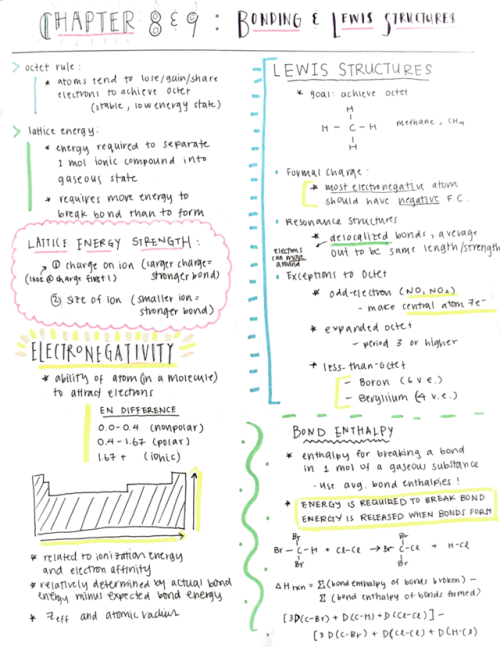 CHAPTER 8 & 9 : BONDING & LEWIS STRUCTURES
octet rule :
* atoms tend to lose/gain/share
electrons to achieve octet
(stable, low energy state)
lattice energy:
* energy required to separate
1 mol ionic compound into
gaseous state
* requires more energy to
break bond than to form
LATTICE ENERGY STRENGTH :
① charge on ion (larger charge =
(look @ charge first!) stronger bond)
② size of ion (smaller ion =
stronger bond)
ELECTRONEGATIVITY
* ability of atom (in a molecule)
to attract electrons
EN DIFFERENCE
0.0-0.4 (nonpolar)
0.4-1.67 (polar)
1.67 + (ionic)
* related to ionization energy
and electron affinity
* relatively determined by actual bond
energy minus expected bond energy
* Zeff and atomic radius
LEWIS STRUCTURES
* goal: achieve octet
H
H - C - H methane, CH4
H
Formal Charge :
* most electronegative atom
should have negative F.C.
Resonance Structures
* delocalized bonds, average
out to be same length/strength
electrons
can move
around
Exceptions to Octet
* odd-electron (NO, NO2)
- make central atom 7e-
* expanded octet
- period 3 or higher
* less-than-octet
- Boron (6 v.e.)
- Beryllium (4 v.e.)
BOND ENTHALPY
* enthalpy for breaking a bond
in 1 mol of a gaseous substance
- Use avg. bond enthalpies !
* ENERGY IS REQUIRED TO BREAK BOND
ENERGY IS RELEASED WHEN BONDS FORM
Br Br
Br - C - H + Cl-Cl → Br - C - Cl + H-Cl
Br Br
ΔHrxn = Σ(bond enthalpy of bonds broken) -
Σ (bond enthalpy of bonds formed)
[3D(C-Br) + D(C-H) + D(Cl-Cl)] -
[3D(C-Br) + D(C-Cl) + D(H-Cl)